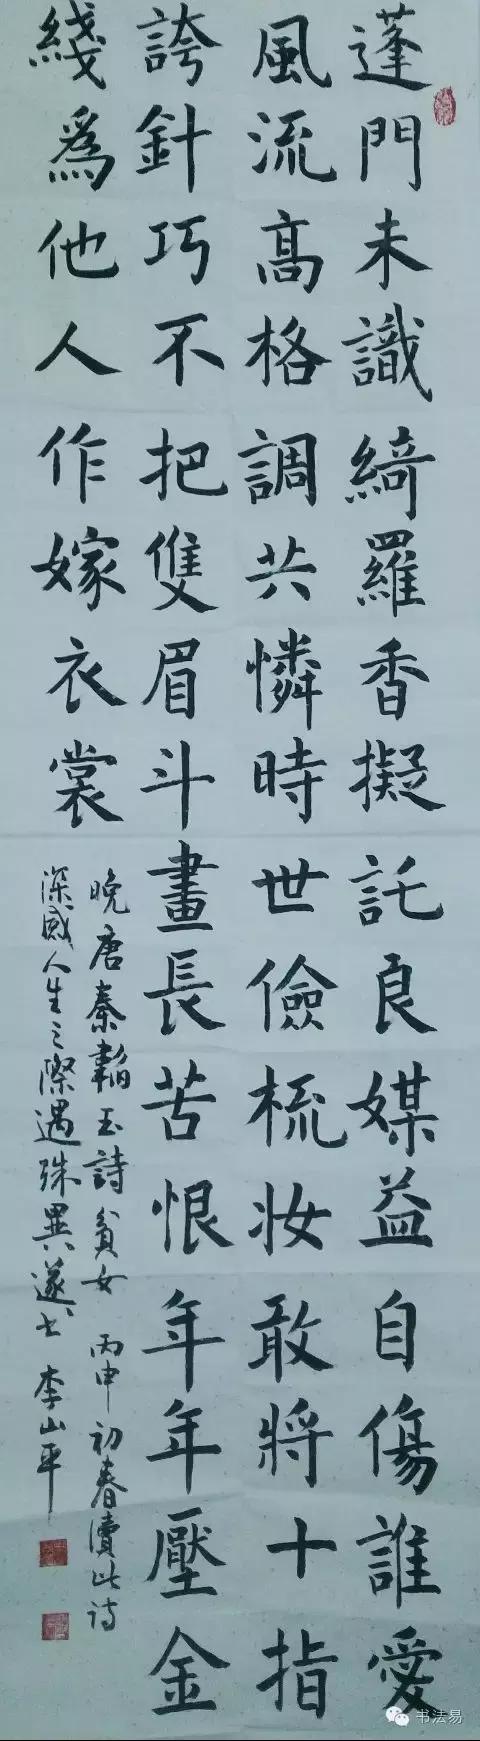 蓬門未識綺羅香擬託良媒益自傷誰愛
風流高格調共憐時世儉梳妝敢將十指
誇針巧不把雙眉斗畫長苦恨年年壓金
綫為他人作嫁衣裳
晚唐秦韜玉詩貧女 丙申初春讀此诗
深感人生之際遇殊異遂书 李山平
书法易